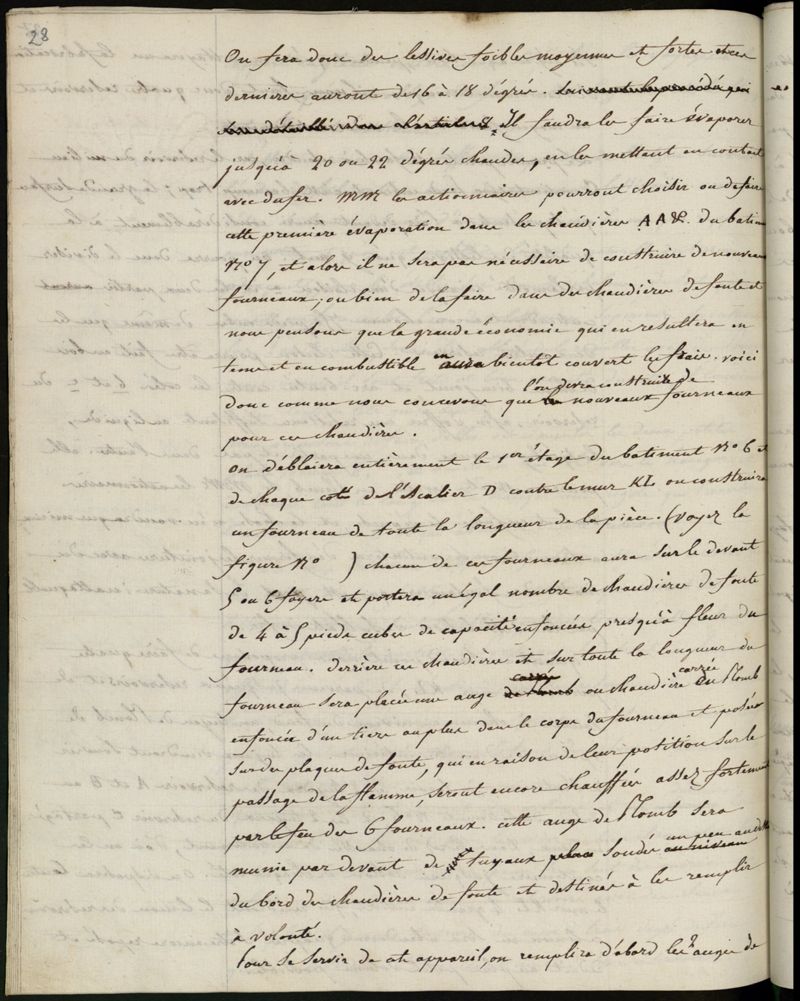 28
On fera donc des lessives foibles moyennes et fortes et ces
dernières auront de 16 à 18 dégrés.
Il faudra les faire évaporer
jusqu'à 20 ou 22 dégrés chaudes, en les mettant en contact
avec du fer. MM. les actionnaires pourront choisir ou de faire
cette première évaporation dans les chaudières AA &. du batim
No 7, et alors il ne sera pas nécessaire de construire de nouveaux
fourneaux; ou bien de la faire dans des chaudières de fonte et
nous pensons que la grande économie qui en resultera en
tems et en combustible en aura bientot couvert les frais. voici
l'on devra construire de
donc comme nous concevons que nouveaux fourneaux
pour ces chaudières.
On déblaiera entièrement le 1er étage du batiment No 6 et
de chaque coté de l'Escalier D contre le mur KL on construira
un fourneau de toute la longueur de la pièce. (voyez la
figure No ) chacun de ces fourneaux aura sur le devant
5 ou 6 foyers et portera un égal nombre de chaudières de fonte
de 4 à 5 pieds cubes de capacité enfoncées presqu'à fleur du
fourneau. derrière ces chaudières et sur toute la longueur du
carrée
fourneau sera placée une auge de Plomb ou chaudière du Plomb
enfoncée d'un tiers au plus dans le corps du fourneau et posée
sur des plaques de fonte, qui en raison de leur position sur le
passage de la flamme, seront encore chauffées assez fortement
par le feu des 6 fourneaux. cette auge de Plomb sera
munie par devant de tuyaux soudés un peu au dessus
du bord des chaudières de fonte et destinés à les remplir
à volonté.
Pour se servir de cet appareil, on remplira d'abord les 2 auges de